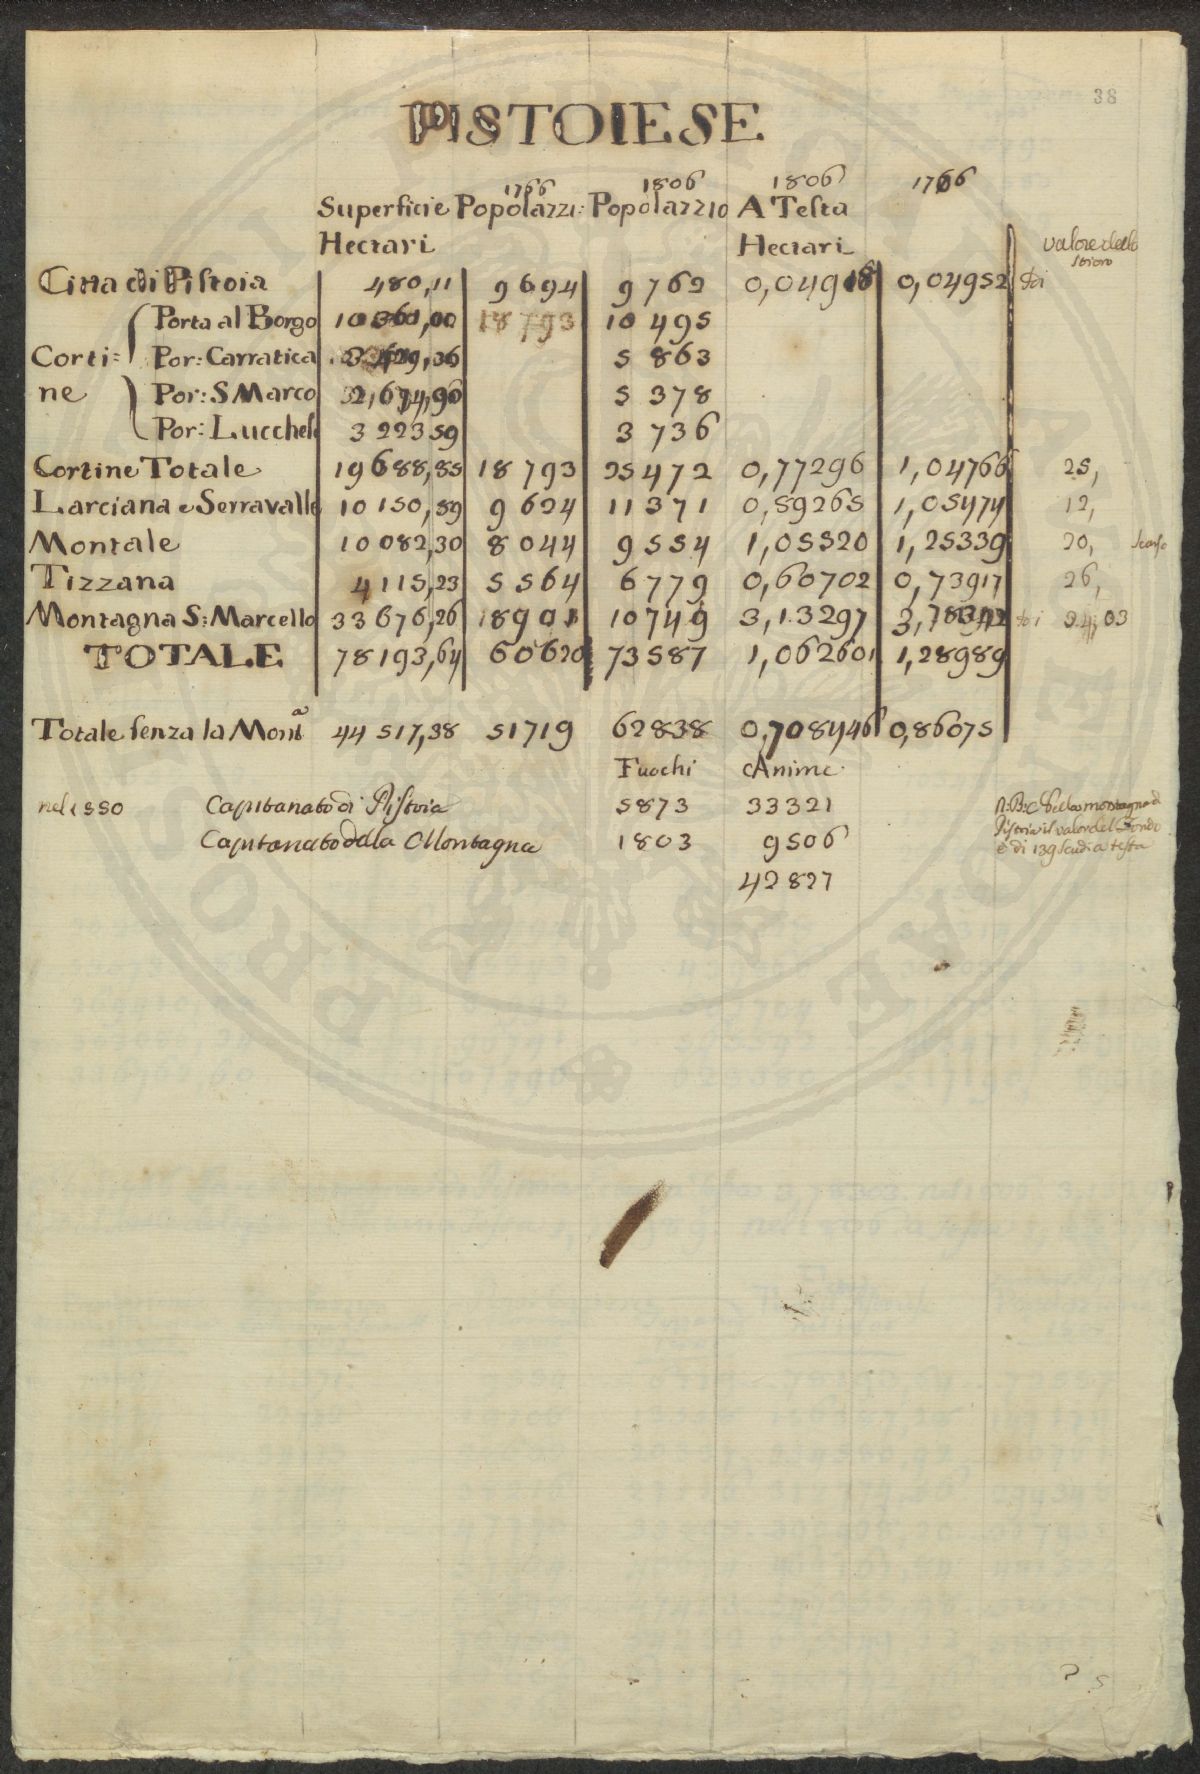 38
PISTOIESE
1766 1806 1806 1766
Superficie Popolazzi: Popolazzio A Testa
Hectari Hectari valore dello
stioro
Citta di Pistoia 480,11 9694 9762 0,04918 0,04952 sdi
Porta al Borgo 10361,00 18793 10495
Corti= Por: Carratica 5863
ne Por: S Marco 5378
Por: Lucchese 3223 59 3736
Cortine Totale 19688,85 18793 25472 0,77296 1,04766 25,
Larciana e Serravalle 10150,89 9624 11371 0,89265 1,05474 12,
Montale 10082,30 8044 9554 1,05520 1,25339 20, scarso
Tizzana 4115,23 5564 6779 0,60702 0,73917 26,
Montagna S: Marcello 33676,26 10749 3,13297
TOTALE 78193,64 60620 73587 1,062601 1,28989
Totale senza la Monta 44517,38 51719 62838 0,708446 0,86075
Fuochi Anime
nel 1550 Capitanato di Pistoia 5873 33321 N:B: Che la montagna di
Capitanato dela Montagna 1803 9506 Pistoia il valor del Fondo
è di 139 scudi a testa
42827